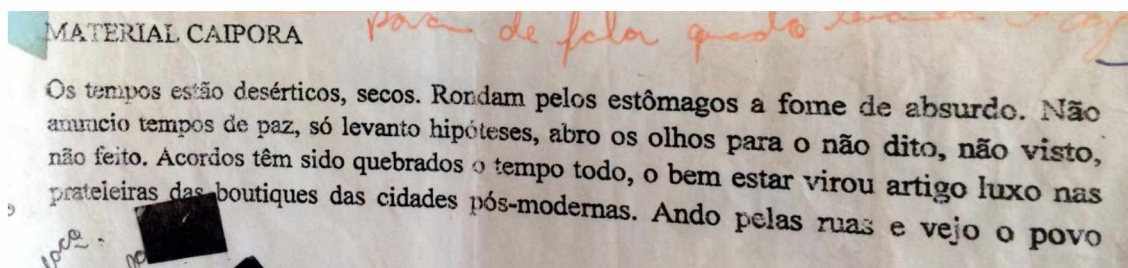 MATERIAL CAIPORA
Para de falar quado
Os tempos estão desérticos, secos. Rondam pelos estômagos a fome de absurdo. Não
anuncio tempos de paz, só levanto hipóteses, abro os olhos para o não dito, não visto,
não feito. Acordos têm sido quebrados o tempo todo, o bem estar virou artigo luxo nas
prateleiras das boutiques das cidades pós-modernas. Ando pelas ruas e vejo o povo